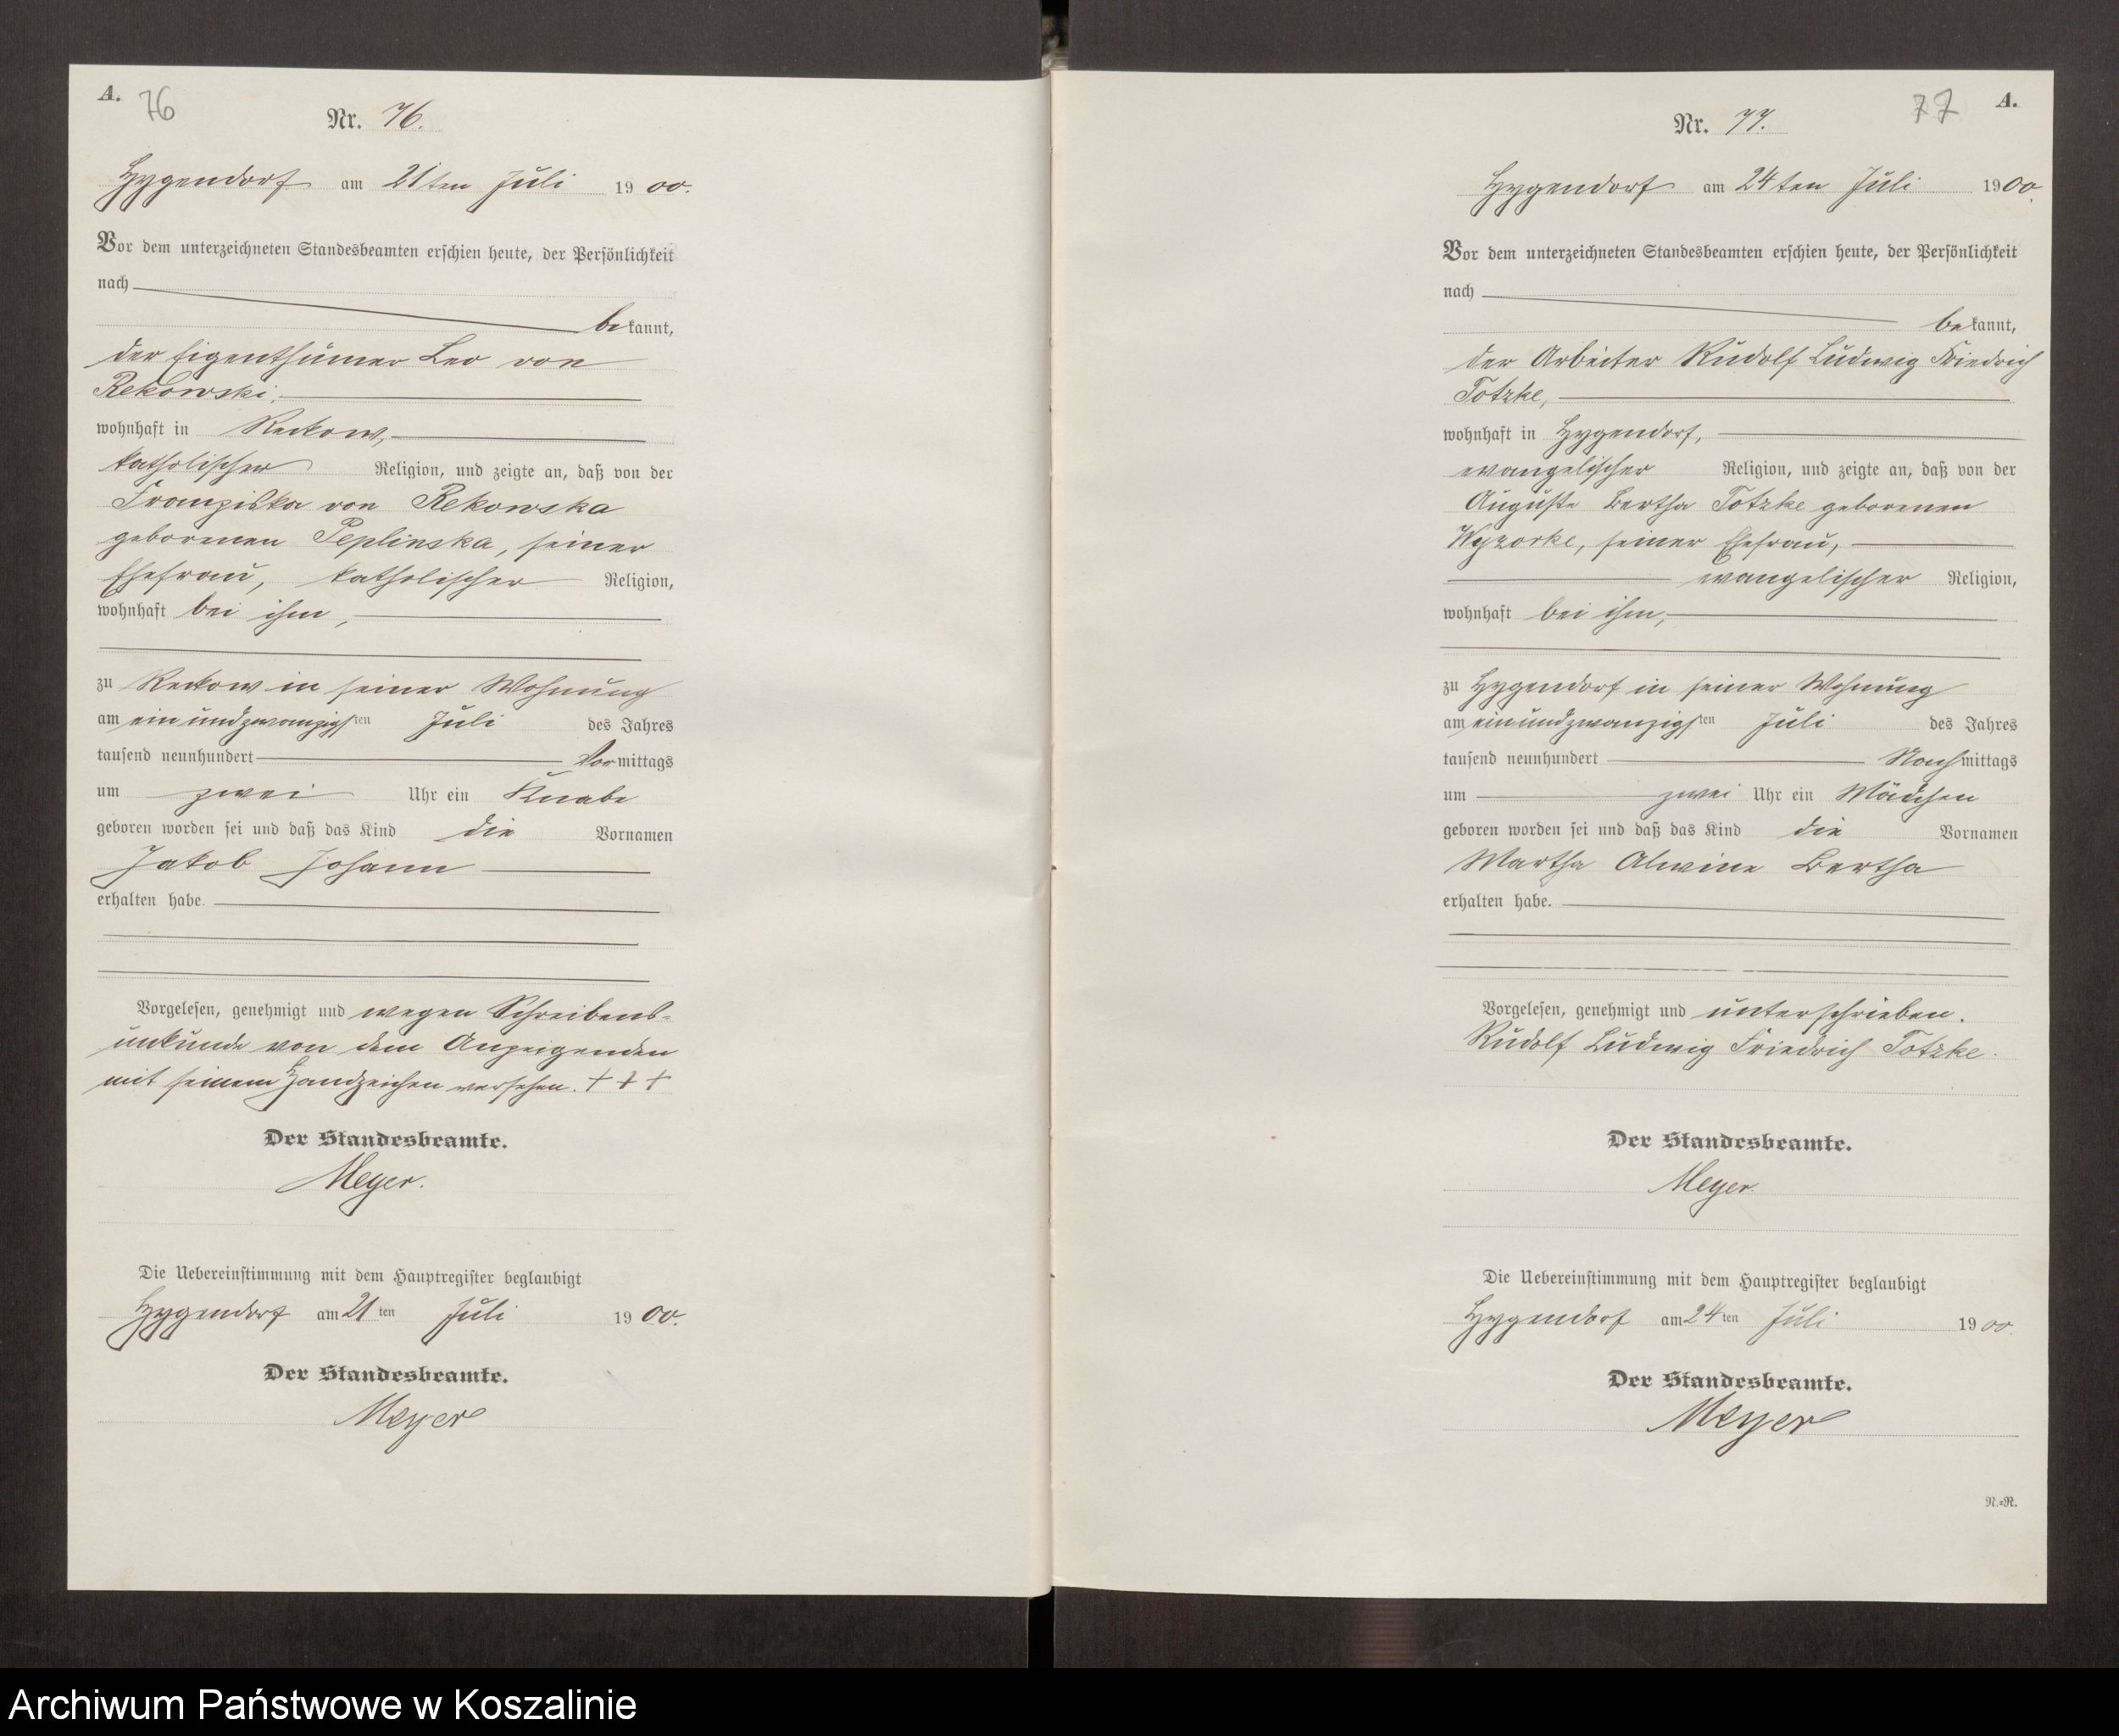 A.
76
Nr. 76.
Hygendorf am 21ten Juli 1900.
Vor dem unterzeichneten Standesbeamten erschien heute, der Persönlichkeit
nach
bekannt,
der Eigenthümer Leo von
Rekowski,
wohnhaft in Reckow,
katholischer Religion, und zeigte an, daß von der
Franziska von Rekowska
geborenen Peplinska, seiner
Ehefrau, katholischer Religion,
wohnhaft bei ihm,
zu Reckow in seiner Wohnung
am ein und zwanzigsten Juli des Jahres
tausend neunhundert Vormittags
um zwei Uhr ein Knabe
geboren worden sei und daß das Kind die Vornamen
Jakob Johann
erhalten habe.
Vorgelesen, genehmigt und wegen Schreibens-
unkunde von dem Anzeigenden
mit seinem Handzeichen versehen. + + +
Der Standesbeamte.
Meyer.
Die Uebereinstimmung mit dem Hauptregister beglaubigt
Hygendorf am 21ten Juli 1900.
Der Standesbeamte.
Meyer
77
A.
Nr. 77.
Hygendorf am 24ten Juli 1900.
Vor dem unterzeichneten Standesbeamten erschien heute, der Persönlichkeit
nach
bekannt,
der Arbeiter Rudolf Ludwig Friedrich
Totzke,
wohnhaft in Hygendorf,
evangelischer Religion, und zeigte an, daß von der
Auguste Bertha Totzke geborenen
seiner Ehefrau,
evangelischer Religion,
wohnhaft bei ihm,
zu Hygendorf in seiner Wohnung
am einundzwanzigsten Juli des Jahres
tausend neunhundert Nachmittags
um zwei Uhr ein Mädchen
geboren worden sei und daß das Kind die Vornamen
Martha Alwine Bertha
erhalten habe.
Vorgelesen, genehmigt und unterschrieben.
Rudolf Ludwig Friedrich Totzke.
Der Standesbeamte.
Meyer.
Die Uebereinstimmung mit dem Hauptregister beglaubigt
Hygendorf am 24ten Juli 1900.
Der Standesbeamte.
Meyer
N.=R.
Archiwum Państwowe w Koszalinie